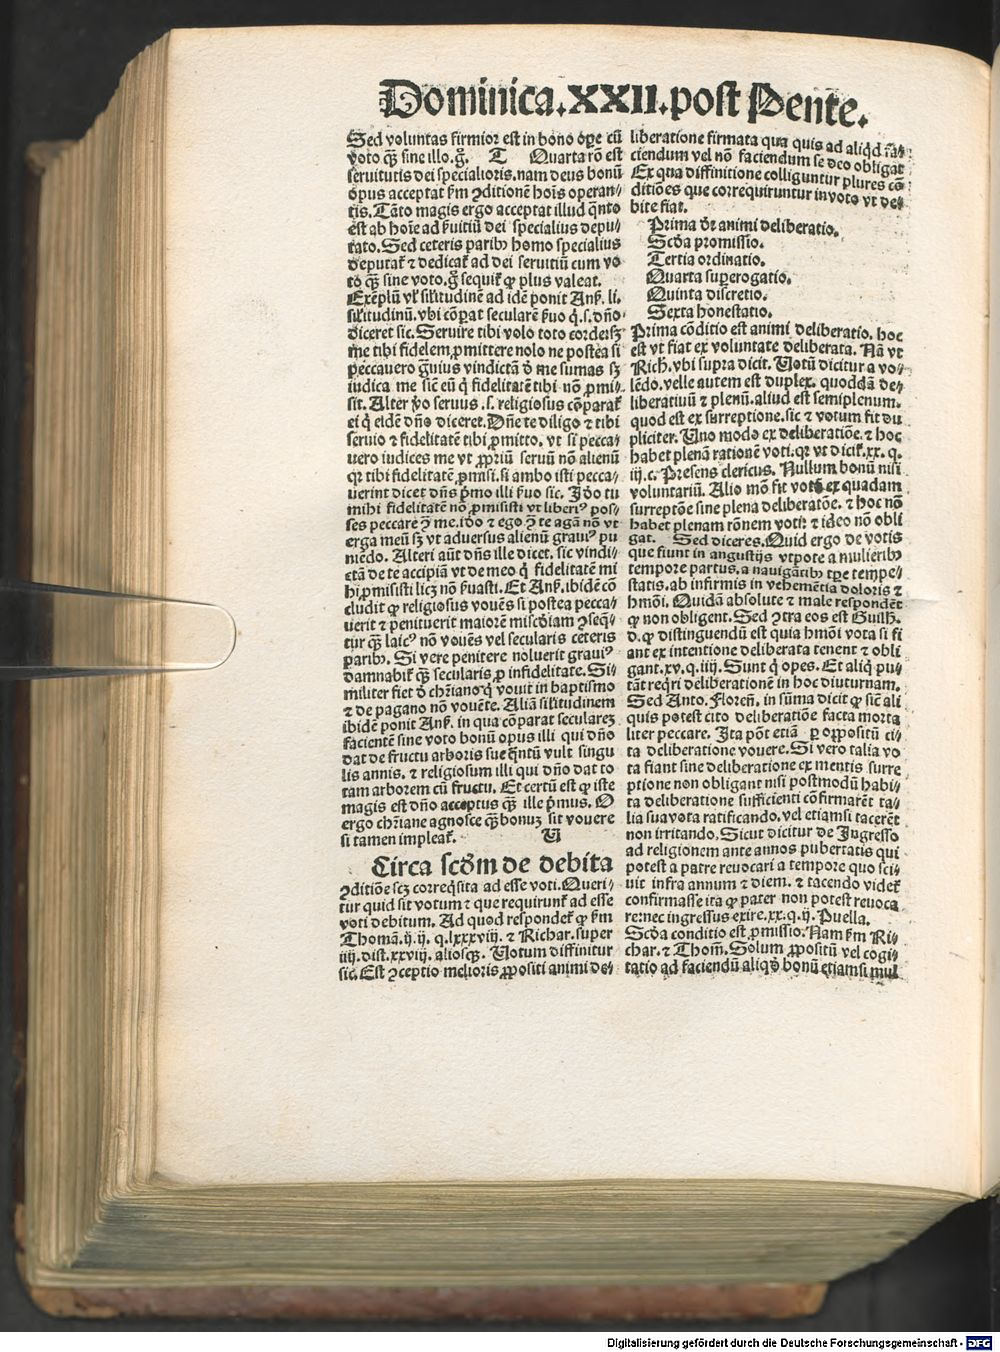 Dominica.XXII.post Pente.
Sed voluntas firmior est in bono oꝑe cū
voto qꝫ̄ sine illo.gͦ. T Quarta rō est
seruitutis dei specialioris.nam deus bonū
opus acceptat ẜm ꝯditionē hoīs operan⸗
tis.Tāto magis ergo acceptat illud qͣnto
est ab hoīe ad ẜuitiū dei specialius depu⸗
tato. Sed ceteris paribꝰ homo specialius
deputat̄ ⁊ dedicat̄ ad dei seruitiū cum vo
to qꝫ̄ sine voto.gͦ sequit̄ ꝙ plus valeat.
Exēplū vl̓ sil̓itudinē ad idē ponit Anẜ. li.
sil̓itudinū.vbi cōꝑat secularē ẜuo q̇.s.dn̄o
diceret sic.Seruire tibi volo toto corde.sꝫ
me tibi fidelem ꝓmittere nolo ne postea si
peccauero gͣuius vindictā ḋ me sumas sꝫ
iudica me sic̄ eū q̇ fidelitatē tibi nō ꝓmi⸗
sit. Alter v̓o seruus .s. religiosus cōparat̄
ei q̇ eidē dn̄o diceret.Dn̄e te diligo ⁊ tibi
seruio ⁊ fidelitatē tibi ꝓmitto. vt si pecca⸗
uero iudices me vt ꝓpriū seruū nō alienū
qꝛ tibi fidelitatē ꝓmisi.si ambo isti pecca⸗
uerint dicet dn̄s pͥmo illi ẜuo sic. Iḋo tu
mihi fidelitatē nō ꝓmisisti vt liberiꝰ pos⸗
ses peccare ↄͣ me.iḋo ⁊ ego ↄͣ te agā nō vt
erga meū sꝫ vt aduersus alienū grauiꝰ pu
niēdo. Alteri aūt dn̄s ille dicet. sic vindi⸗
ctā de te accipiā vt de meo q̇ fidelitatē mi
hi ꝓmisisti licꝫ nō ẜuasti. Et Anẜ. ibidē cō
cludit ꝙ religiosus vouēs si postea pecca⸗
uerit ⁊ penituerit maiorē mīcḋiam ꝯseq̇⸗
tur qꝫ̄ laicꝰ nō vouēs vel secularis ceteris
paribꝰ. Si vere penitere noluerit grauiꝰ
damnabit̄ qꝫ̄ secularis ꝓ infidelitate. Si⸗
militer fiet ḋ chr̄iano q̇ vouit in baptismo
⁊ de pagano nō vouēte. Aliā sil̓itudinem
ibidē ponit Anẜ. in qua cōparat secularē
facientē sine voto bonū opus illi qui dn̄o
dat de fructu arboris sue qͣntū vult singu
lis annis. ⁊ religiosum illi qui dn̄o dat to
tam arborem cū fructu. Et certū est ꝙ iste
magis est dn̄o acceptus qꝫ̄ ille pͥmus. O
ergo chr̄iane agnosce qꝫ̄ bonuꝫ sit vouere
si tamen impleat̄. V
Circa scḋm de debita
ꝯditiōe scꝫ correqͥsita ad esse voti.Queri⸗
tur quid sit votum ⁊ que requirunt̄ ad esse
voti debitum. Ad quod respondet̄ ꝙ ẜm
Thomā.ij.ij. q.lxxxviij. ⁊ Richar.super
iiij.dist.xxviij. aliosqꝫ. Uotum diffinitur
sic. Est ꝯceptio melioris ꝓpositi animi de⸗
liberatione firmata qua quis ad aliqḋ fa⸗
ciendum vel nō faciendum se deo obligat
Ex qua diffinitione colliguntur plures cō
ditiōes que correquiruntur in voto vt de⸗
bite fiat.
Prima ḋr animi deliberatio.
Scḋa promissio.
Tertia ordinatio.
Quarta superogatio.
Quinta discretio.
Sexta honestatio.
Prima cōditio est animi deliberatio. hoc
est vt fiat ex voluntate deliberata. Nā vt
Rich. vbi supra dicit. Uotū dicitur a vo⸗
lēdo.velle autem est duplex. quoddā de⸗
liberatiuū ⁊ plenū.aliud est semiplenum.
quod est ex surreptione.sic ⁊ votum fit du
pliciter. Uno modo ex deliberatiōe. ⁊ hoc
habet plenā rationē voti.qꝛ vt dicit̄.xx. q.
iij.c. Presens clericus. Nullum bonū nisi
voluntariū. Alio mō fit votū ex quadam
surreptōe sine plena deliberatōe. ⁊ hoc nō
habet plenam rōnem voti: ⁊ ideo nō obli
gat. Sed diceres.Quid ergo de votis
que fiunt in angustijs vtpote a mulieribꝰ
tempore partus. a nauigātibꝰ tꝑe tempe⸗
statis.ab infirmis in vehemētia doloris ⁊
hmōi. Quidā absolute ⁊ male respondēt
ꝙ non obligent. Sed ꝯtra eos est Guilh.
d. ꝙ distinguendū est quia hmōi vota si fi
ant ex intentione deliberata tenent ⁊ obli
gant.xv.q.iiij. Sunt q̇ opes. Et aliq̇ pu⸗
tāt reqͥri deliberationē in hoc diuturnam.
Sed Anto. Floreñ. in sūma dicit ꝙ sic̄ ali
quis potest cito deliberatiōe facta morta
liter peccare. Ita pōt etiā ꝑ ꝓpositū ci⸗
ta deliberatione vouere. Si vero talia vo
ta fiant sine deliberatione ex mentis surre
ptione non obligant nisi postmodū habi⸗
ta deliberatione sufficienti cōfirmarēt ta⸗
lia sua vota ratificando. vel etiamsi tacerēt
non irritando, Sicut dicitur de Ingresso
ad religionem ante annos pubertatis qui
potest a patre reuocari a tempore quo sci⸗
uit infra annum ⁊ diem. ⁊ tacendo videt̄
confirmasse ita ꝙ pater non potest reuoca
re:nec ingressus exire.xx.q.ij. Puella.
Scḋa conditio est ꝓmissio. Nam ẜm Ri⸗
char. ⁊ Thom̄. Solum ꝓpositū vel cogi⸗
tatio ad faciendū aliqḋ bonū etiamsi mul
Digitalisierung gefördert durch die Deutsche Forschungsgemeinschaft - DFG